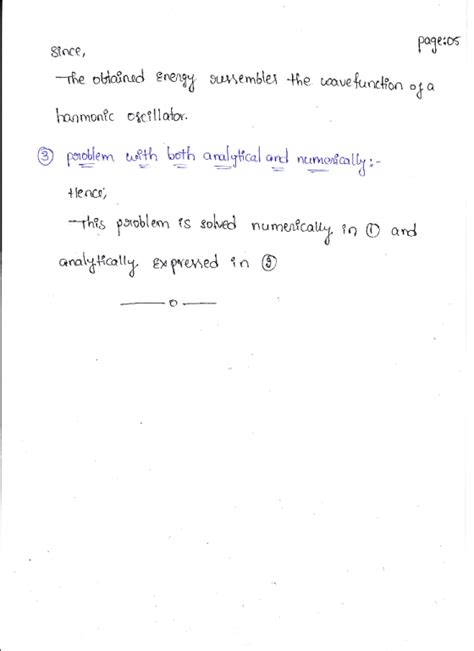 page:05
Since,
The obtained energy russembles the wavefunction of a
harmonic oscillator.
③ problem with both analytical and numerically:-
Hence,
This problem is solved numerically in ① and
analytically expressed in ②